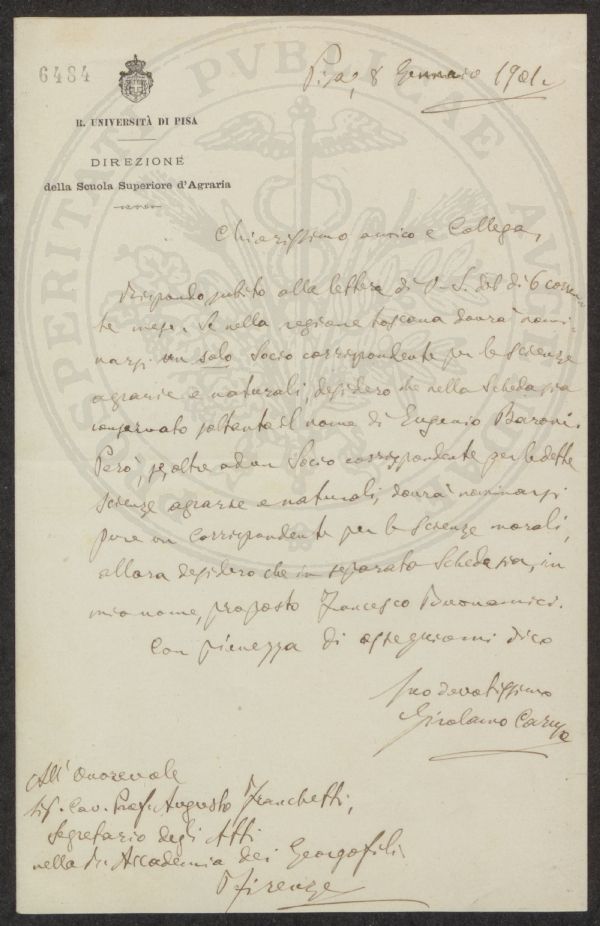 6484
Pisa, 8 Gennaio 1901.
R. UNIVERSITÀ DI PISA
DIREZIONE
della Scuola Superiore d'Agraria
Chiarissimo amico e Collega,
Rispondo subito alla lettera di V. S. del dì 6 corren-
te mese. Se nella regione toscana dovrà nomi-
narsi un solo Socio corrispondente per le scienze
agrarie e naturali, desidero che nella Scheda sia
conservato soltanto il nome di Eugenio Baroni.
Però, se, oltre ad un Socio corrispondente per le dette
scienze agrarie e naturali, dovrà nominarsi
pure un corrispondente per le scienze morali,
allora desidero che in separata Scheda sia, in
mio nome, proposto Francesco Buonamici.
Con pienezza di ossequi mi dico
Suo devotissimo
Girolamo Caruso
All' Onorevole
Sig. Cav. Prof. Augusto Franchetti,
Segretario degli Atti
nella R. Accademia dei Georgofili
Firenze
PROSPERITATI PVBLICAE AVGENDAE